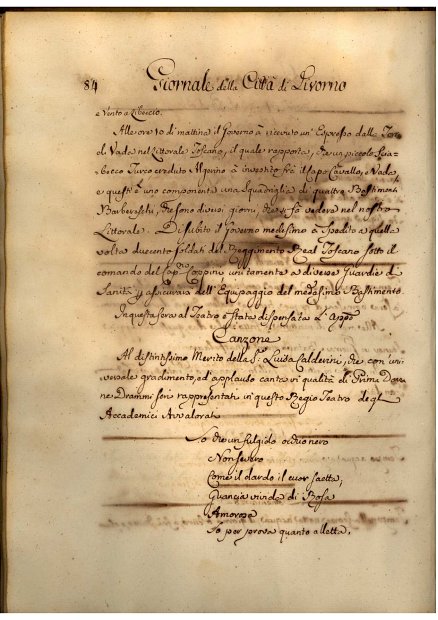 84 Giornale della Città di Livorno
e Vento a Libeccio.
Alle ore 10 di mattina il Governo à ricevuto un Espresso dalla Torre
di Vada nel Littorale Toscano, il quale rapporta, che un piccolo Scia-
becco Turco creduto Algerino à investito frà il Capo Cavallo, e Vada,
e questi è uno componente una Squadriglia di quattro Bastimenti
Barbereschi, che sono diversi giorni, che si fà vedere nel nostro
Littorale. Di subito il Governo medesimo à spedito a quella
volta duecento Soldati del Reggimento Real Toscano sotto il
comando del Cap. Coppini unitamente a diverse Guardie di
Sanità p assicurarsi dell'Equipaggio del medesimo Bastimento.
In questa sera al Teatro è stata dispensata
Canzone
Al distintissimo Merito della Sig.ra Luisa Calderini, che con uni-
versale gradimento, ed applauso canta in qualità di Prima Don-
na ne Drammi rappresentati in questo Regio Teatro degl
Accademici Avvalorati
So che un fulgido occhio nero
Non severo
Come il dardo il cuor saetta,
Guancia vivida di Rosa
Amorosa
So per prova quanto alletta,